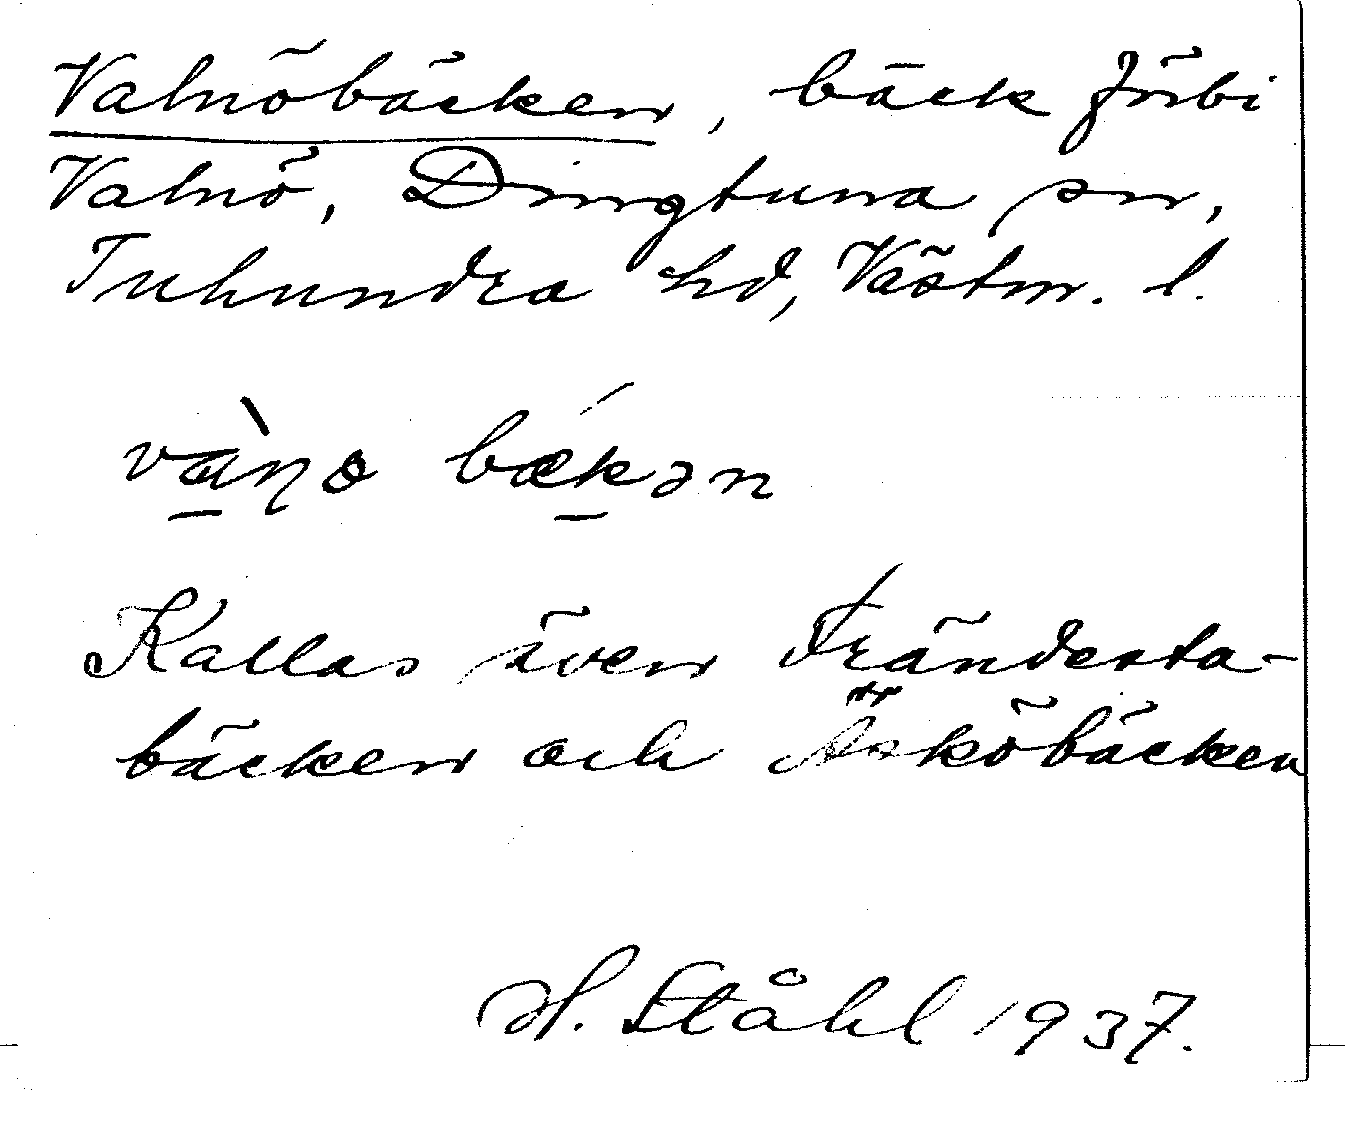 Valnöbäcken, bäck förbi
Valnö, Dingtuna sn,
Tuhundra hd, Västm. l.
vàŋo bækən
Kallas även Frändesta-
bäcken och Äsköbäcken
H. Ståhl 1937.